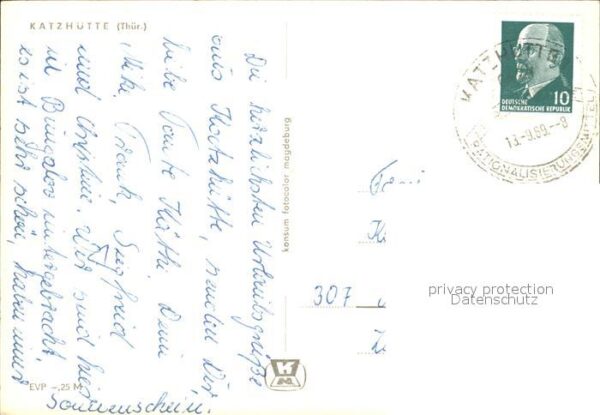 KATZHÜTTE (Thür.)
Die herzlichsten Urlaubsgrüße
aus Katzhütte, senden Dir,
liebe Tante Käthe Dein
Frank, Siegfried
und Christine. Wir sind hier
im Bungalow untergebracht,
es ist sehr schön, haben immer
Sonnenschein.
EVP -,25 M
konsum fotocolor magdeburg
KM
DEUTSCHE
DEMOKRATISCHE REPUBLIK
10
KATZHÜTTE
13.-9.69.-9
RATIONALISIERUNGSMITTEL
Fami
K
307
privacy protection
Datenschutz